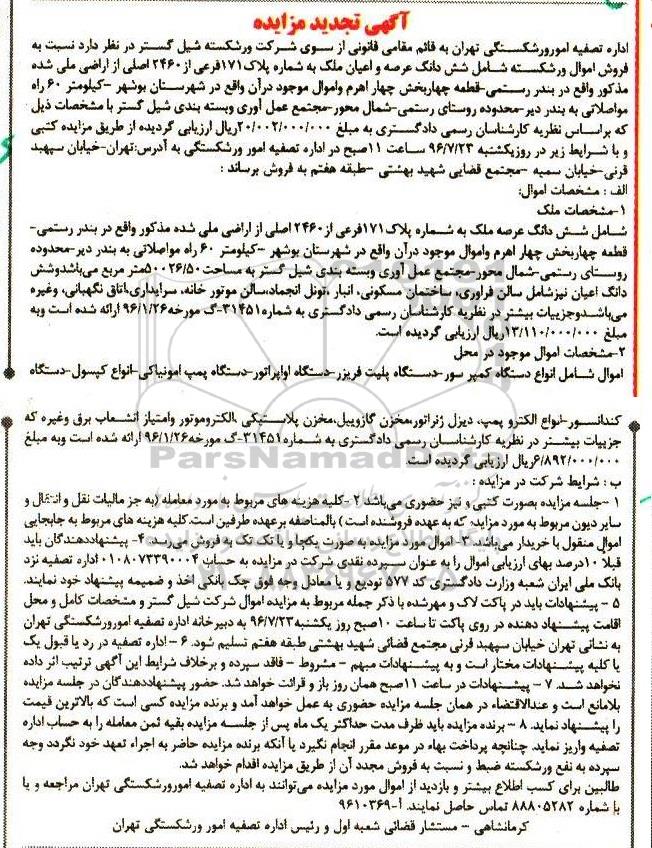 آگهی تجدید مزایده
اداره تصفیه امورورشکستگی تهران به قائم مقامی قانونی از سوی شرکت ورشکسته شیل گستر در نظر دارد نسبت به
فروش اموال ورشکسته شامل شش دانگ عرصه و اعیان ملک به شماره پلاک۱۷۱فرعی از۲۴۶۰ اصلی از اراضی ملی شده
مذکور واقع در بندر رستمی-قطعه چهاربخش چهار اهرم واموال موجود درآن واقع در شهرستان بوشهر -کیلومتر ۶۰ راه
مواصلاتی به بندر دیر-محدوده روستای رستمی-شمال محور-مجتمع عمل آوری وبسته بندی شیل گستر با مشخصات ذیل
که براساس نظریه کارشناسان رسمی دادگستری به مبلغ ۲۰/۰۰۲/۰۰۰/۰۰۰ریال ارزیابی گردیده از طریق مزایده کتبی
و با شرایط زیر در روزیکشنبه ۹۶/۷/۲۳ ساعت ۱۱صبح در اداره تصفیه امور ورشکستگی به آدرس:تهران-خیابان سپهبد
قرنی-خیابان سمیه -مجتمع قضایی شهید بهشتی -طبقه هفتم به فروش برساند :
الف : مشخصات اموال:
۱-مشخصات ملک
شامل شش دانگ عرصه ملک به شماره پلاک۱۷۱فرعی از۲۴۶۰ اصلی از اراضی ملی شده مذکور واقع در بندر رستمی-
قطعه چهاربخش چهار اهرم واموال موجود درآن واقع در شهرستان بوشهر -کیلومتر ۶۰ راه مواصلاتی به بندر دیر-محدوده
روستای رستمی-شمال محور-مجتمع عمل آوری وبسته بندی شیل گستر به مساحت۵۰۰۲۶/۵۰متر مربع می‌باشدوشش
دانگ اعیان نیزشامل سالن فراوری، ساختمان مسکونی، انبار ،تونل انجماد،سالن موتور خانه، سرایداری،اتاق نگهبانی، وغیره
می‌باشدوجزییات بیشتر در نظریه کارشناسان رسمی دادگستری به شماره۳۱۴۵۱-گ مورخه۹۶/۱/۲۶ ارائه شده است وبه
مبلغ ۱۳/۱۱۰/۰۰۰/۰۰۰ریال ارزیابی گردیده است.
۲-مشخصات اموال موجود در محل
اموال شامل انواع دستگاه کمپر سور-دستگاه پلیت فریزر-دستگاه اواپراتور-دستگاه پمپ امونیاکی-انواع کپسول-دستگاه
کندانسور-انواع الکترو پمپ، دیزل ژنراتور،مخزن گازوییل،مخزن پلاستیکی ،الکتروموتور وامتیاز انشعاب برق وغیره که
جزییات بیشتر در نظریه کارشناسان رسمی دادگستری به شماره۳۱۴۵۱-گ مورخه۹۶/۱/۲۶ ارائه شده است وبه مبلغ
۶/۸۹۲/۰۰۰/۰۰۰ریال ارزیابی گردیده است.
ب : شرایط شرکت در مزایده :
۱ -جلسه مزایده بصورت کتبی و نیز حضوری می‌باشد ۲ -کلیه هزینه های مربوط به مورد معامله (به جز مالیات نقل و انتقال و
سایر دیون مربوط به مورد مزایده که به عهده فروشنده است) بالمناصفه برعهده طرفین است.کلیه هزینه های مربوط به جابجایی
اموال منقول با خریدار می‌باشد. ۳- اموال مورد مزایده به صورت یکجا و یا تک تک به فروش می‌رسد. ۴- پیشنهاددهندگان باید
قبلا ۱۰درصد بهای ارزیابی اموال را به عنوان سپرده نقدی شرکت در مزایده به حساب ۰۱۰۸۰۷۳۳۹۰۰۰۴ اداره تصفیه نزد
بانک ملی ایران شعبه وزارت دادگستری کد ۵۷۷ تودیع و یا معادل وجه فوق چک بانکی اخذ و ضمیمه پیشنهاد خود نمایند.
۵ - پیشنهادات باید در پاکت لاک و مهرشده با ذکر جمله مربوط به مزایده اموال شرکت شیل گستر و مشخصات کامل و محل
اقامت پیشنهاد دهنده در روی پاکت تا ساعت ۱۰صبح روز یکشنبه۹۶/۷/۲۳ به دبیرخانه اداره تصفیه امورورشکستگی تهران
به نشانی تهران خیابان سپهبد قرنی مجتمع قضائی شهید بهشتی طبقه هفتم تسلیم شود. ۶ - اداره تصفیه در رد یا قبول یک
یا کلیه پیشنهادات مختار است و به پیشنهادات مبهم - مشروط - فاقد سپرده و برخلاف شرایط این آگهی ترتیب اثر داده
نخواهد شد. ۷ - پیشنهادات در ساعت ۱۱صبح همان روز باز و قرائت خواهد شد. حضور پیشنهاددهندگان در جلسه مزایده
بلامانع است و عندالاقتضاء در همان جلسه مزایده حضوری به عمل خواهد آمد و برنده مزایده کسی است که بالاترین قیمت
را پیشنهاد نماید. ۸ - برنده مزایده باید ظرف مدت حداکثر یک ماه پس از جلسه مزایده بقیه ثمن معامله را به حساب اداره
تصفیه واریز نماید. چنانچه پرداخت بهاء در موعد مقرر انجام نگیرد یا آنکه برنده مزایده حاضر به اجراء تعهد خود نگردد وجه
سپرده به نفع ورشکسته ضبط و نسبت به فروش مجدد آن از طریق مزایده اقدام خواهد شد.
طالبین برای کسب اطلاع بیشتر و بازدید از اموال مورد مزایده می‌توانند به اداره تصفیه امورورشکستگی تهران مراجعه و یا
با شماره ۸۸۸۰۵۲۸۲ تماس حاصل نمایند. آ-۹۶۱۰۳۶۹
کرمانشاهی - مستشار قضائی شعبه اول و رئیس اداره تصفیه امور ورشکستگی تهران
ParsNamadData